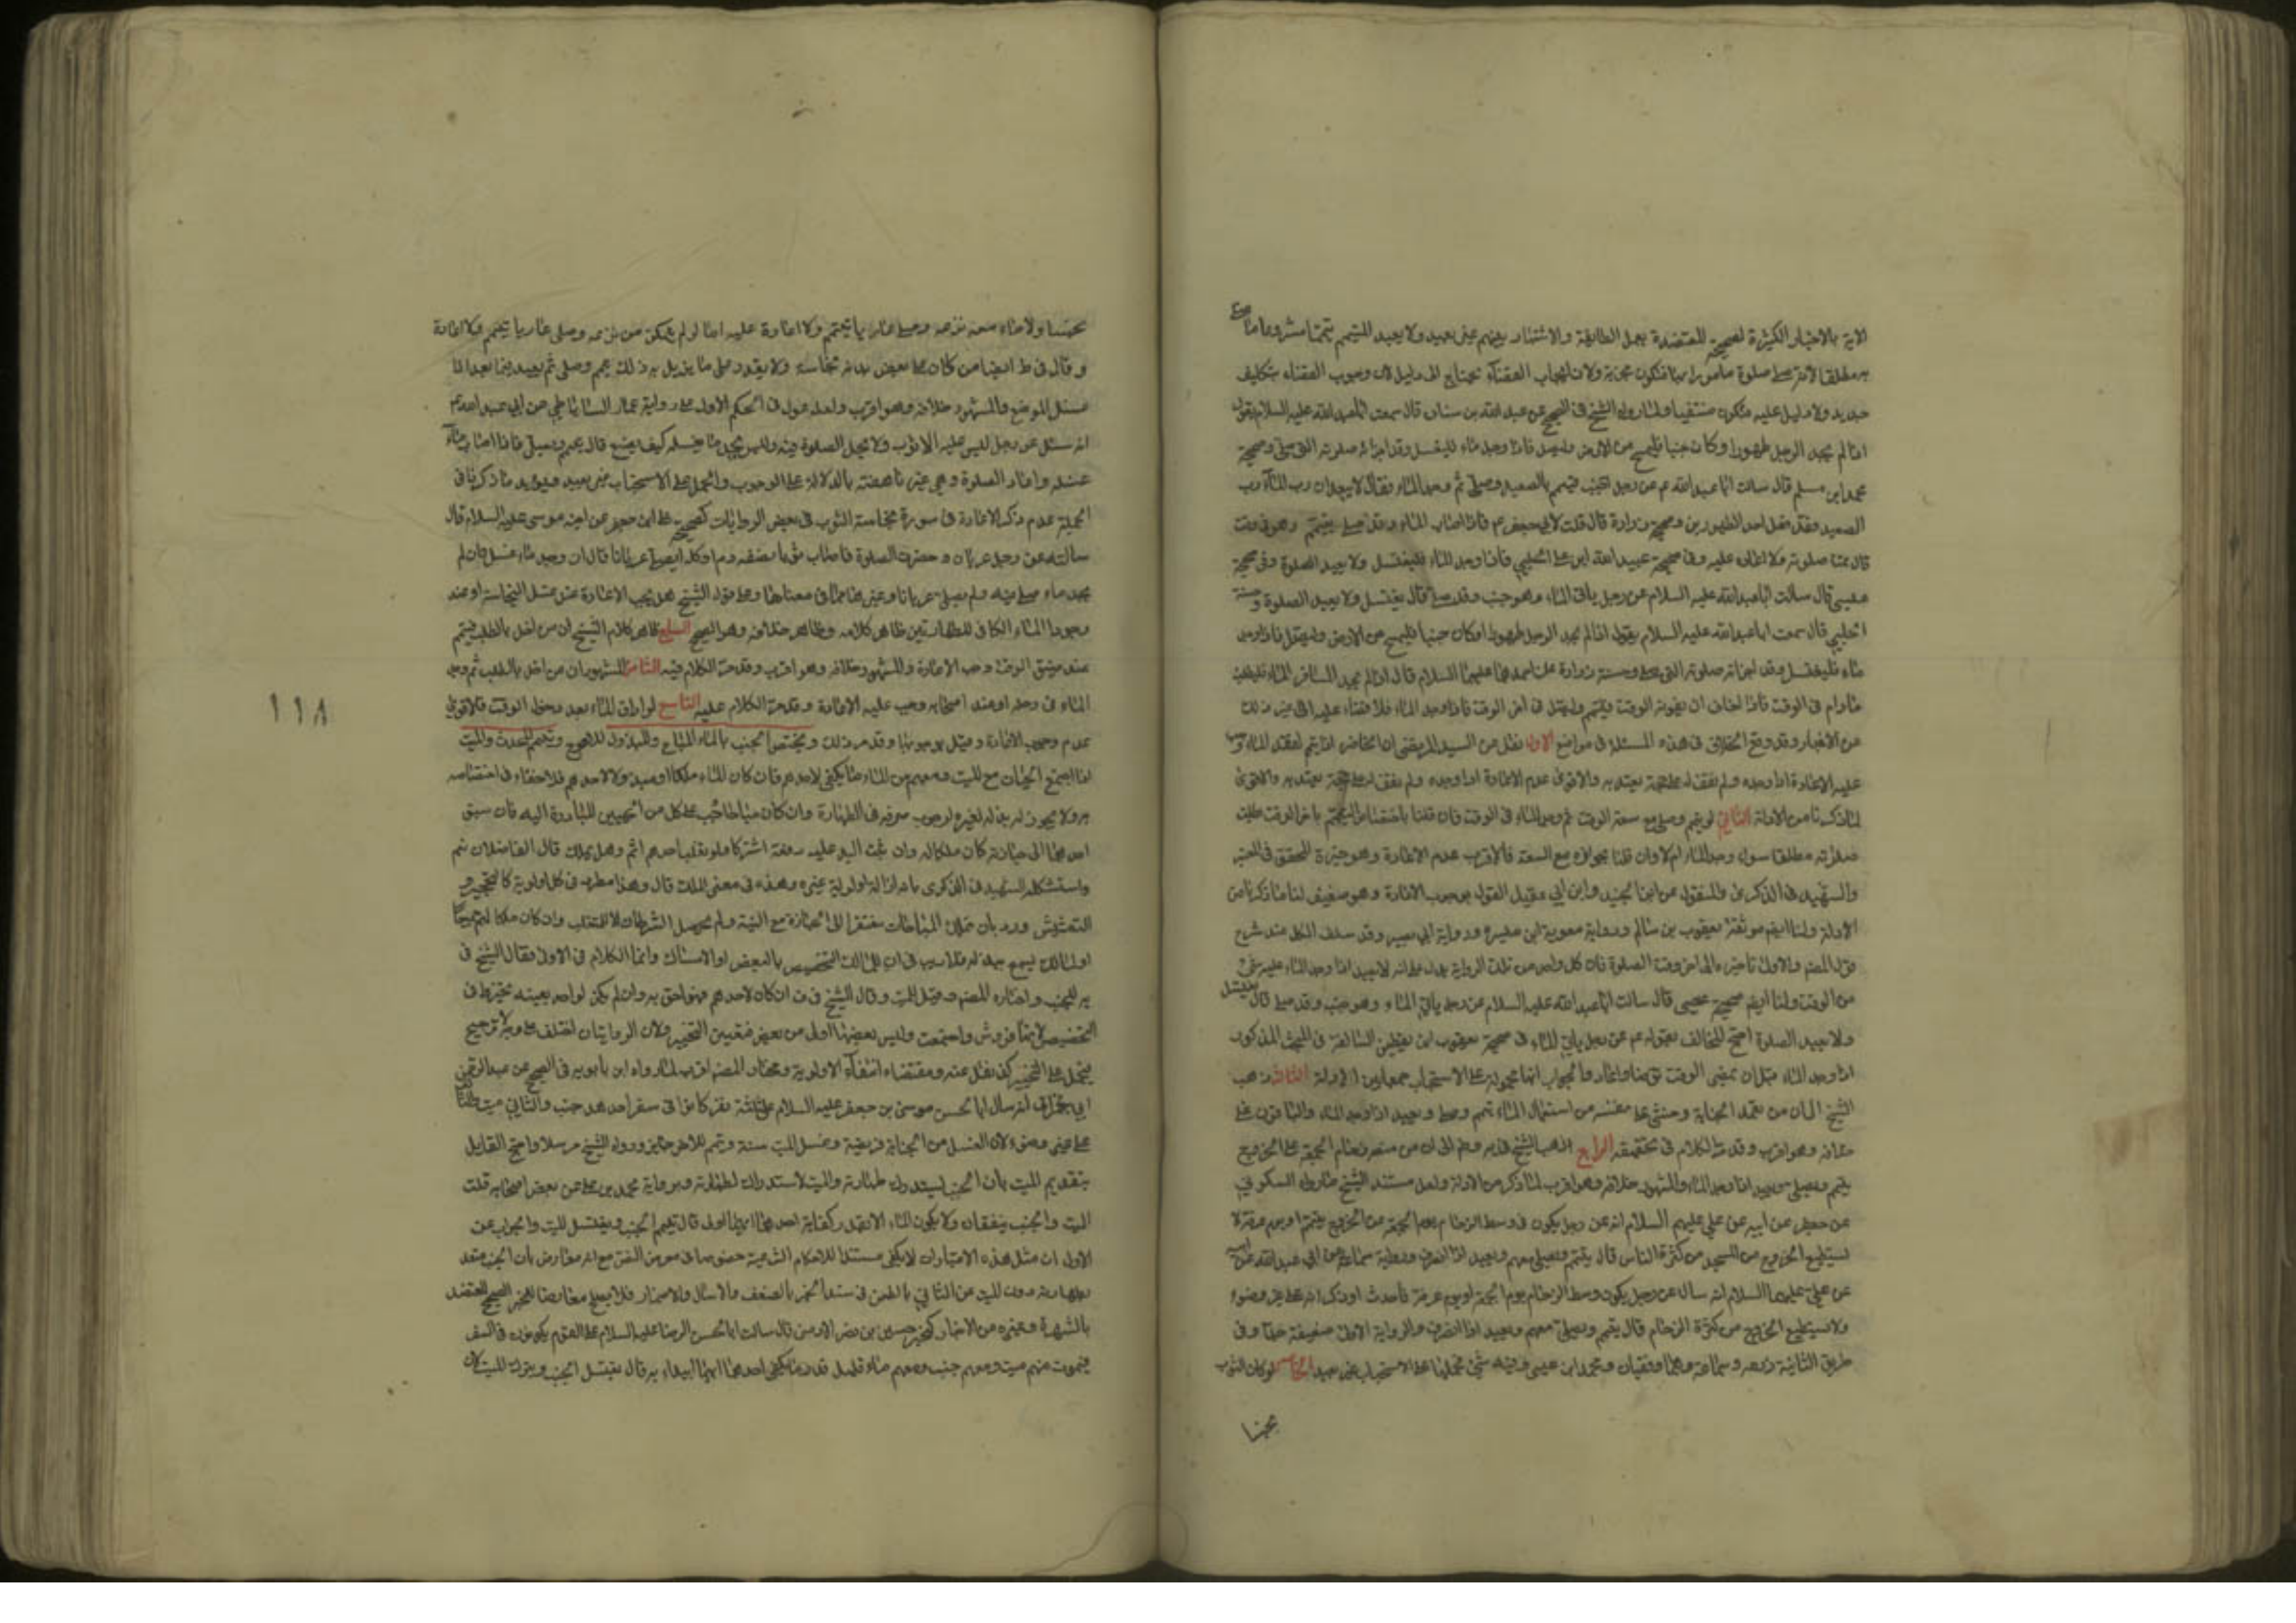 الاية بالاخبار الكثيرة الصحيحة المعتضدة بعمل الطائفة والاشتهار بينهم غير بعيد ولا يعيد المتيمم تيمما مشروعا ما صلى
به مطلقا لانه صلى صلوة مامورا بها فتكون مجزية ولان ايجاب القضاء يحتاج الى دليل لان وجوب القضاء بتكليف
جديد ولا دليل عليه فتكون منتفيا ولما رواه الشيخ في الصحيح عن عبد الله بن سنان قال سمعت ابا عبد الله عليه السلام يقول
اذا لم يجد الرجل طهورا وكان جنبا فليمسح من الارض وليصل فاذا وجد ماء فليغتسل وقد اجزائه صلوته التي صلى وصحيحة
محمد ابن مسلم قال سالت ابا عبد الله عم عن رجل اجنب فتيمم بالصعيد وصلى ثم وجد الماء فقال لا يعيد ان رب الماء رب
الصعيد فقد فعل احد الطهورين وصحيحة زرارة قال قلت لابي جعفر عم فان اصاب الماء وقد صلى بتيمم وهو في وقت
قال تمت صلوته ولا اعادة عليه وفي صحيحة عبيد الله ابن علي الحلبي فاذا وجد الماء فليغتسل ولا يعيد الصلوة وفي صحيحة
عيسى قال سالت ابا عبد الله عليه السلام عن رجل ياتي الماء وهو جنب وقد صلى قال يغتسل ولا يعيد الصلوة وحسنة
الحلبي قال سمعت ابا عبد الله عليه السلام يقول اذا لم يجد الرجل طهورا وكان جنبا فليمسح من الارض وليصل فاذا وجد
ماء فليغتسل وقد اجزاته صلوته التي صلى وحسنة زرارة عن احدهما عليهما السلام قال اذا لم يجد المسافر الماء فليطلب
مادام في الوقت فاذا خاف ان يفوته الوقت فليتيمم وليصل في اخر الوقت فاذا وجد الماء فلا قضاء عليه الى غير ذلك
من الاخبار وقد وقع الخلاف في هذه المسئلة في مواضع الاول نقل عن السيد المرتضى ان الحاضر اذا تيمم لفقد الماء وجب
عليه الاعادة اذا وجده ولم نقف له على حجة يعتد به والاقوى عدم الاعادة
لما ذكرنا من الادلة الثاني لو تيمم وصلى مع سعة الوقت ثم وجد الماء في الوقت فان قلنا باختصاص التيمم باخر الوقت بطلت
صلوته مطلقا سواء وجد الماء ام لا وان قلنا بجوازه مع السعة فالاقرب عدم الاعادة وهو خيرة المحقق في المعتبر
والشهيد في الذكرى والمنقول عن ابن الجنيد وابن ابي عقيل القول بوجوب الاعادة وهو ضعيف لنا ما ذكرنا من
الادلة ولنا ايضا موثقة يعقوب بن سالم ورواية معوية ابن ميسرة ورواية ابي بصير وقد سلف الكل عند شرح
قول المصنف والاولى تاخيره الى اخر وقت الصلوة فان كل واحد من تلك الرواية يدل على انه لا يعيد اذا وجد الماء عليه شئ
من الوقت ولنا ايضا صحيحة عيسى قال سالت ابا عبد الله عليه السلام عن رجل ياتي الماء وهو جنب وقد صلى قال يغتسل
ولا يعيد الصلوة احتج المخالف بقوله عم عن رجل ياتي الماء في صحيحة يعقوب ابن يقطين السالفة في المبحث المذكور
اذا وجد الماء قبل ان يمضي الوقت توضا واعاد والجواب انها محمولة على الاستحباب جمعا بين الادلة الثالث ذهب
الشيخ الى ان من تعمد الجنابة وخشي على نفسه من استعمال الماء تيمم وصلى ويعيد اذا وجد الماء والباقون على
خلافه وهو اقرب وقد مر الكلام في تحقيقه الرابع ذهب الشيخ في يه وط الى ان من منعه زحام الجمعة على الخروج
يتيمم ويصلي ويعيد اذا وجد الماء والمشهور خلافه وهو اقرب لما ذكر من الادلة ولعل مستند الشيخ ما رواه السكوني
عن جعفر عن ابيه عن علي عليهم السلام انه عن رجل يكون في وسط الزحام يوم الجمعة
يستطيع الخروج من المسجد من كثرة الناس قال يتيمم ويصلي معهم ويعيد اذا انصرف ورواية سماعة عن ابي عبد الله عن ابيه
عن علي عليهما السلام انه سال عن رجل يكون وسط الزحام يوم الجمعة او يوم عرفة فاحدث او ذكر انه على غير وضوء
ولا يستطيع الخروج من كثرة الزحام قال يتيمم ويصلي معهم ويعيد اذا انصرف والرواية الاولى ضعيفة جدا وفي
طريق الثانية زرعة وسماعة وهما وقفيان ومحمد ابن عيسى وفيه شئ فحملها على الاستحباب غير بعيد الخامس لو كان الثوب
نجسا
نجسا ولا ماء معه نزعه وصلى عاريا بتيمم ولا اعادة عليه اما لو لم يتمكن من نزعه وصلى عاريا بتيمم فلا اعادة
وقال في ط ايضا من كان على بعض بدنه نجاسة ولا يقدر على ما يزيل به ذلك تيمم وصلى ثم يعيد فيما بعد اذا
غسل الموضع والمشهور خلافه وهو اقرب ولعله عول في الحكم الاول على رواية عمار الساباطي عن ابي عبد الله عم
انه سئل عن رجل ليس عليه الا ثوب ولا يحل الصلوة فيه وليس يجد ما يغسله كيف يصنع قال يتيمم ويصلي فاذا اصاب ماء
غسله واعاد الصلوة وهي غير ناهضة بالدلالة على الوجوب والحمل على الاستحباب غير بعيد ويؤيد ما ذكرنا في
الجملة عدم ذكر الاعادة في صورة نجاسة الثوب في بعض الروايات كصحيحة علي ابن جعفر عن اخيه موسى عليه السلام قال
سالته عن رجل عريان وحضرت الصلوة فاصاب ثوبا نصفه دم او كله ايصلي عريانا قال ان وجد ماء غسل فان لم
يجد ماء صلى فيه ولم يصل عريانا وغيرها مما في معناها وعلى قول الشيخ هل يجب الاعادة عند غسل النجاسة او عند
وجود الماء الكافي للطهارتين ظاهر كلامه وظاهر خلافه وهو الصحيح السابع ظاهر كلام الشيخ ان من اخل بالطلب فتيمم
عند ضيق الوقت وجب الاعادة والمشهور خلافه وهو اقرب وقد مر الكلام فيه الثامن المشهور ان من اخل بالطلب ثم وجد
الماء في رحله او عند اصحابه وجب عليه الاعادة وقد مر الكلام عليه التاسع لو اراق الماء بعد دخول الوقت فالاقوى
عدم وجوب الاعادة وقيل بوجوبها وقد مر ذلك ويختص الجنب بالماء المباح والمبذول للاحوج ويتيمم المحدث والميت
اذا اجتمع الجنبان مع الميت ومعهم من الماء ما يكفي لاحدهم فان كان الماء ملكا لاحدهم فلا خفاء في اختصاصه
به ولا يجوز له بذله لغيره لوجوب صرفه في الطهارة وان كان مباحا وجب على كل من الحيين المبادرة اليه فان سبق
احدهما الى حيازته كان ملكا له وان ثبت اليد عليه دفعة اشتركا ولو تغلب احدهم اثم وهل يملك قال الفاضلان نعم
واستشكله الشهيد في الذكرى بانه ازالة اولوية غيره وهذه في معنى الملك قال وهذا مطرد في كل اولوية كالتحجير و
التعشيش ورد بان تملك المباحات مفتقر الى الحيازة مع النية ولم يحصل الشرطان الا للمتغلب وان كان ملكا
او لمالك يسمح ببذله فلا ريب في ان للمالك التخصيص بالبعض او الامساك وانما الكلام في الاولى فقال الشيخ في
يه الجنب واختاره المصنف وقيل الميت وقال الشيخ في ف ان كان لاحدهم فهو احق به وان لم يكن لواحد بعينه تخيروا في
التخصيص لانها فروض واجتمعت وليس بعضها اولى من بعض فتعين التخيير ولان الروايتان اختلف على وجه لا ترجيح
فتحمل على التخيير كذا نقل عنه ومقتضاه انتفاء الاولوية ومختار المصنف اقرب لما رواه ابن بابويه في الصحيح عن عبد الرحمن
ابي نجران انه سال ابا الحسن موسى بن جعفر عليه السلام عن ثلثة نفر كانوا في سفر احدهم جنب والثاني ميت والثالث
على غير وضوء لان الغسل من الجنابة فريضة وغسل الميت سنة وتيمم للاخر جايز ورواه الشيخ مرسلا واحتج القايل
بتقديم الميت بان الجنب يستدرك طهارته والميت لا استدراك لطهارته وبرواية محمد بن علي عن بعض اصحابه قلت
الميت والجنب يتفقان ولا يكون الماء الا بقدر كفاية احدهما ايهما اولى قال تيمم الجنب ويغتسل الميت والجواب عن
الاول ان مثل هذه الاعتبارات لا يكفي مستندا للاحكام الشرعية خصوصا في معرض النص مع انه معارض بان الجنب متعبد
بطهارته دون الميت عن الثاني بالطعن في سند الخبر بالضعف والارسال والاضمار فلا يصلح معارضا للخبر الصحيح المعتضد
بالشهرة وغيره من الاخبار كخبر حسين بن نضر الارمني قال سالت ابا الحسن الرضا عليه السلام عن القوم يكونون في السفر
فيموت منهم ميت ومعهم جنب ومعهم ماء قليل قدر ما يكفي احدهما ايهما ايبداء به قال يغتسل الجنب ويترك الميت لان
١١٨